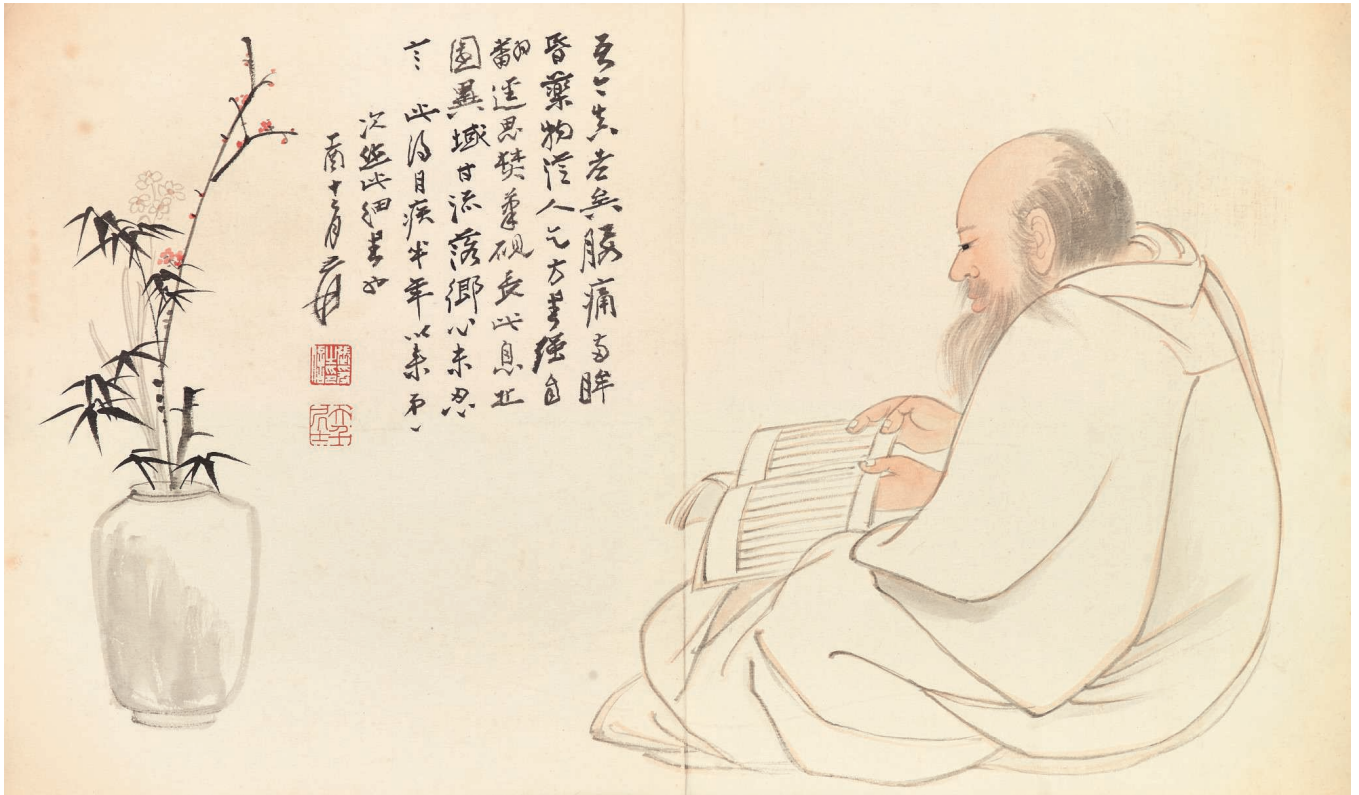 吾今真老矣腰痛兩眸
昏藥物從人乞方書強自
翻逕思焚筆硯長此息丘
園異域甘流落鄉心未忍
言 此得目疾半年以來第一
次能此細書也
丁酉十二月 爰
大千居士